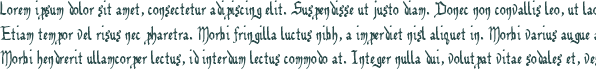 Lorem ipsum dolor sit amet, consectetur adipiscing elit. Suspendisse ut justo diam. Donec non convallis leo, ut lac
Etiam tempor vel risus nec pharetra. Morbi fringilla luctus nibh, a imperdiet nisl aliquet in. Morbi varius augue a
Morbi hendrerit ullamcorper lectus, id interdum lectus commodo at. Integer nulla dui, volutpat vitae sodales et, ve